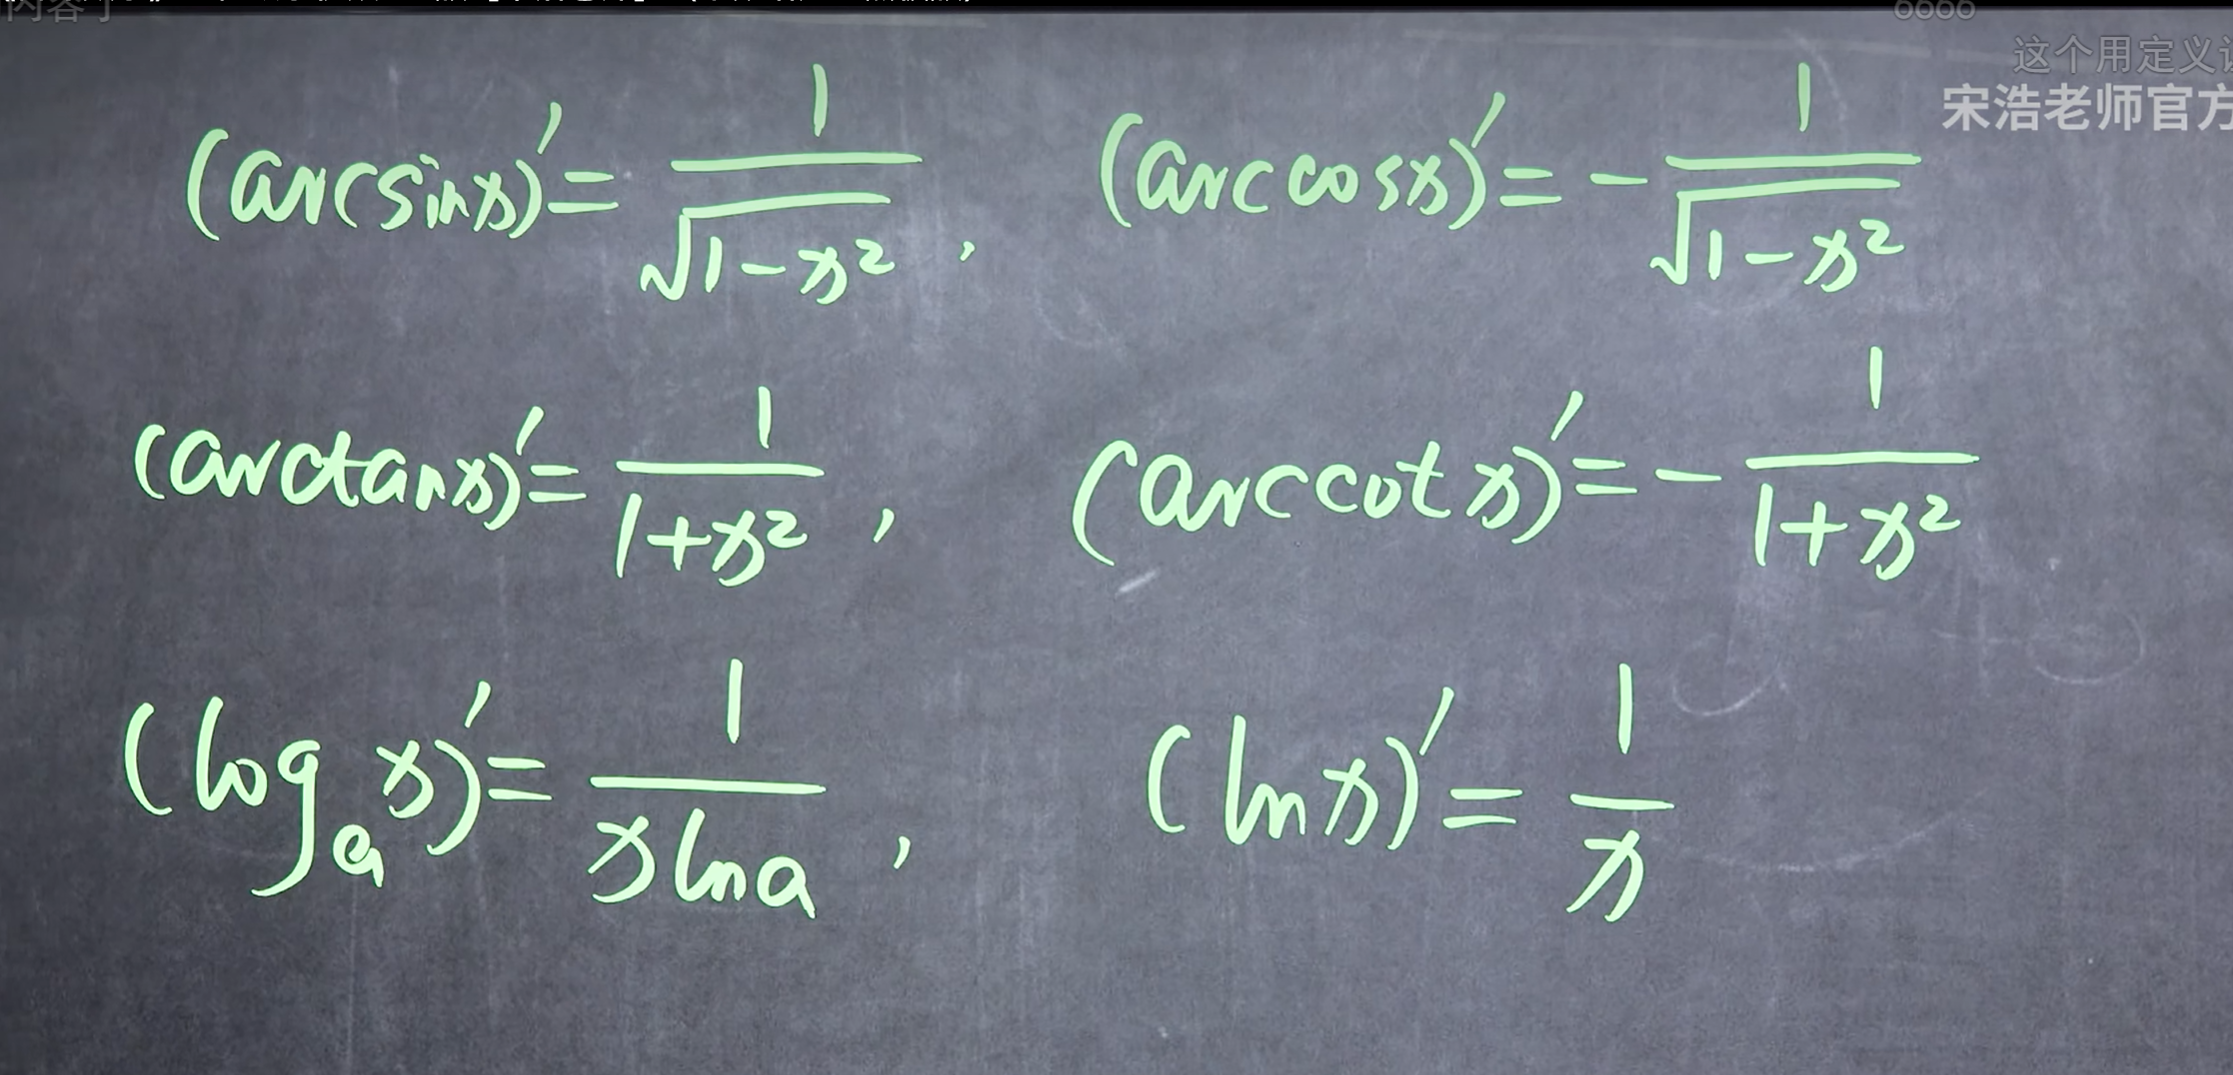 宋浩老师官方
这个用定义
(arcsinx)′= 1/√(1-x²) , (arccosx)′= - 1/√(1-x²)
(arctanx)′= 1/(1+x²) , (arccotx)′= - 1/(1+x²)
(logₐx)′= 1/(xlna) , (lnx)′= 1/x